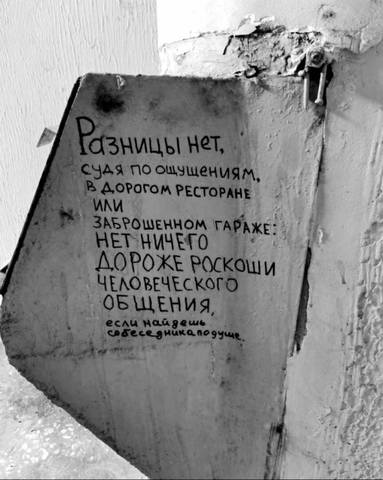 Разницы нет,
судя по ощущениям,
в дорогом ресторане
или
заброшенном гараже:
нет ничего
дороже роскоши
человеческого
общения,
если найдешь
собеседника по душе.